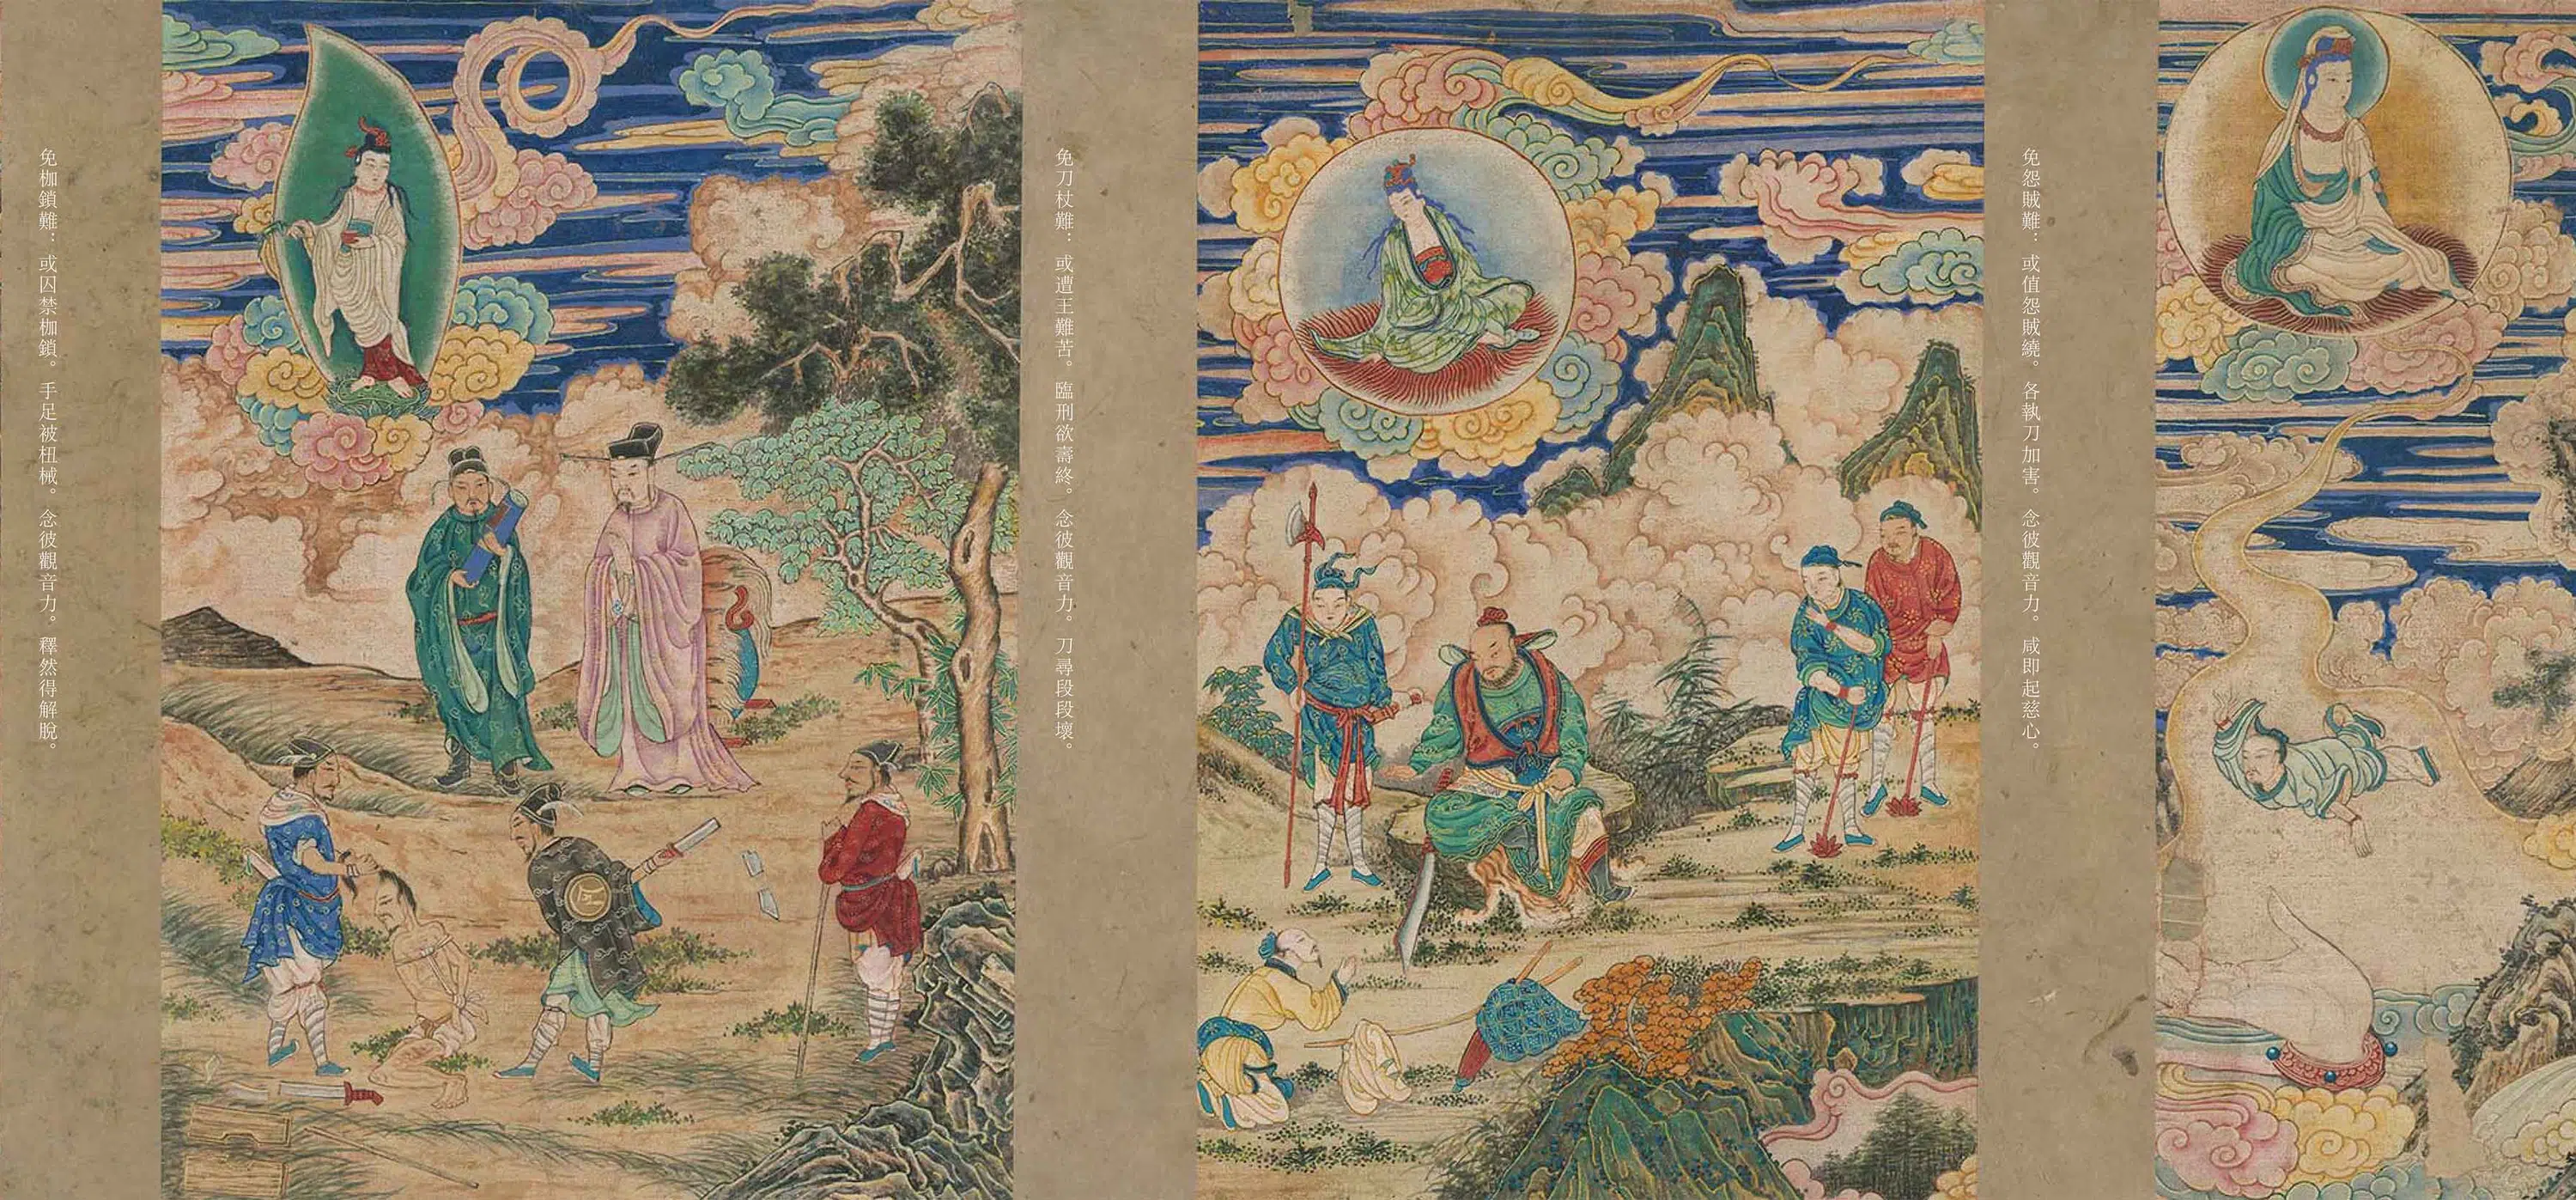 免怨賊難：或值怨賊繞。各執刀加害。念彼觀音力。咸即起慈心。
免刀杖難：或遭王難苦。臨刑欲壽終。念彼觀音力。刀尋段段壞。
免枷鎖難：或囚禁枷鎖。手足被杻械。念彼觀音力。釋然得解脫。